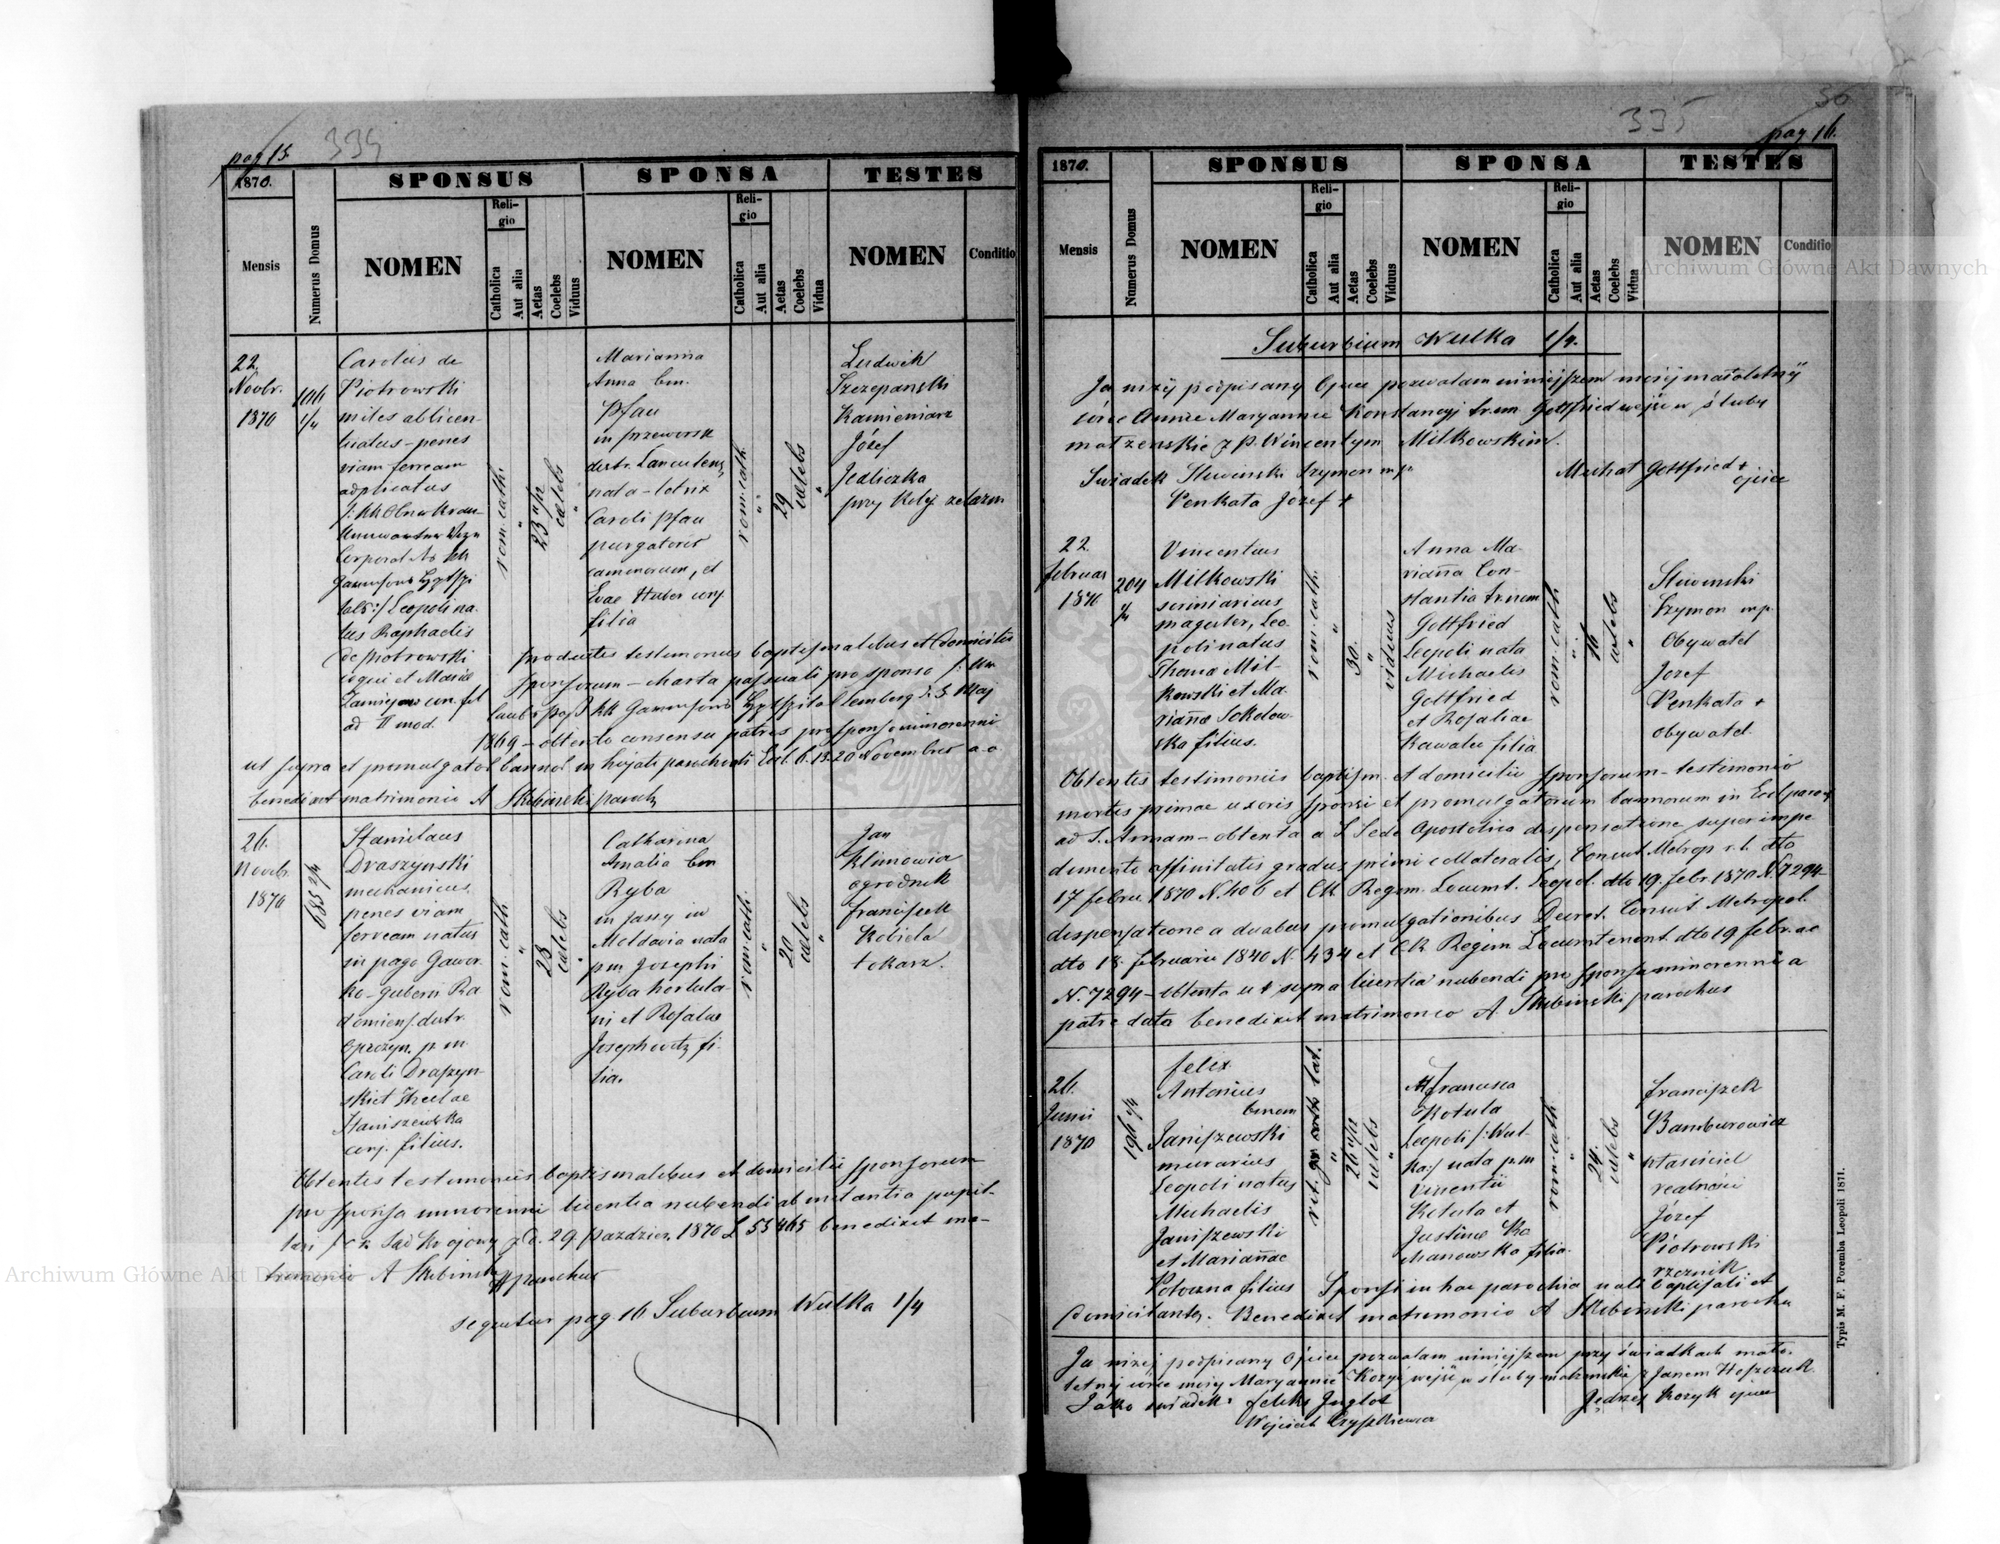 pag 15.
334
1870.
SPONSUS
SPONSA
TESTES
Mensis
Numerus Domus
NOMEN
Religio
Catholica
Aut alia
Aetas
Coelebs
Viduus
NOMEN
Religio
Catholica
Aut alia
Aetas
Coelebs
Vidua
NOMEN
Conditio
22.
Novbr.
1870
106
1/4
Carolus de
Piotrowski
miles ablicen-
tiatus - penes
viam ferream
adplicatus
Corporal
tals:/ Leopoli na-
tus Raphaelis
de Piotrowski
coqui et Mariae
ad II mod.
rom. cath.
"
23
caelebs
"
Marianna
Anna bin.
Pfau
in Przeworsk
distr. Lancutens.
nata - lotrix
Caroli Pfau
purgatoris
caminorum, et
Evae Huber conj.
filia
rom. cath.
"
29
caelebs
"
Ludwik
Szczepanski
Kamieniarz
Józef
Jedliczka
przy Kolej zelazn
Productis testimoniis baptismalibus et domicilii
Sponsorum - charta passuali pro sponso
Lemberg d. 3. Maj
1869 - obtento consensu patris pro sponso minorenni
ut supra et promulgatis bannis in hujate parochiali Eccl. 6. 13. 20 Novembris a.c.
benedixit matrimonio A Skibinski paroch.
26.
Novbr.
1870
685 2/4
Stanislaus
Draszynski
mechanicus
penes viam
ferream natus
in pago Gawor-
ko - gubern Ra-
domiens. distr.
Opoczyn. p. m.
Caroli Draszyn-
ski et Theclae
Staniszewska
conj. filius.
rom. cath.
"
28
caelebs
"
Catharina
Amalia bin
Ryba
in Jassy in
Moldavia nata
p.m. Josephi
Ryba hortula-
ni et Rosaliae
Josephowitz fi-
lia.
rom. cath.
"
20
caelebs
"
Jan
Klimowicz
ogrodnik
Franciszek
Kobiela
tokarz.
Obtentis testimoniis baptismalibus et domicilii sponsorum
pro sponsa minorenni licentia nubendi ab instantia pupil-
lari Sąd krajowy z d. 29. Pazdzier. 1870 L 53465 benedixit ma-
trimonio A Skibinski parochus
sequitur pag. 16 Suburbium Wulka 1/4
30
335
pag 16.
1870.
SPONSUS
SPONSA
TESTES
Mensis
Numerus Domus
NOMEN
Religio
Catholica
Aut alia
Aetas
Coelebs
Viduus
NOMEN
Religio
Catholica
Aut alia
Aetas
Coelebs
Vidua
NOMEN
Conditio
Suburbium Wulka 1/4.
Ja nizej podpisany Ojciec pozwalam niniejszem mojej małoletnij
córce Annie Maryannie Konstancyj trzm. Gottfried wejść w śluby
małżenskie z p. Wincentym Milkowskim.
Swiadek Sliwinski Szymon mp
Michał Gottfried +
ojciec
Penkata Józef +
22
Februar
1870
204
2/4
Vincentius
Milkowski
scriniarius
magister, Leo-
poli natus
Thomae Mil-
kowski et Ma-
riannae Sokolow-
ska filius.
rom. cath.
"
30.
"
viduus
Anna Ma-
rianna Con-
stantia tr.nom
Gottfried
Leopoli nata
Michaelis
Gottfried
et Rosaliae
Kawalec filia
rom. cath
"
16
caelebs
"
Sliwinski
Szymon mp.
Obywatel
Jozef
Penkata +
obywatel.
Obtentis testimoniis baptism. et domicilii sponsorum - testimonio
mortis primae uxoris sponsi et promulgatorum bannorum in Eccl. paroch
ad S. Annam - obtenta a S. Sede Apostolica dispensatione super impe-
dimento affinitatis gradus primi collateralis, Consist. Metrop. r. l. dto
17 febru. 1870 N. 406 et CK Regim. Locumt. Leopol. dto 19. febr. 1870 N. 7294
dispensatione a duabus promulgationibus Decret. Consist. Metropol.
dto 18. februarii 1840 N. 434 et CK Regim Locumtenent. dto 19 febr. ac
N. 7294 - obtenta ut supra licentia nubendi pro sponsa minorenni a
patre data benedixit matrimonio A Skibinski parochus
26
Junii
1870
196 1/4
Felix
Antonius
binom
Janiszewski
murarius
Leopoli natus
Michaelis
Janiszewski
et Mariannae
Potoczna filius
rit. lat.
"
26
caelebs
"
Francisca
Kotula
Leopoli /: Wul-
ka:/ nata p.m.
Vincentii
Kotula et
Justinae Ro-
manowska filia.
rom. cath
"
24.
caelebs
"
Franciszek
Bamburowicz
własciciel
realnosci
Józef
Piotrowski
rzeznik
Sponsi in hac parochia nati baptisati et
domicilantes. Benedixit matrimonio A Skibinski parochu
Ja nizej podpisany Ojciec pozwalam niniejszem przy świadkach mało-
letnij córce mojej Maryannie Kozyk wejść w śluby małzenskie z Janem
Jako świadek: Feliks
Jędrzej Kozyk ojciec
Wojciech
Typis M. F. Poremba Leopoli 1871.
Archiwum Główne Akt Dawnych
Archiwum Główne Akt Dawnych